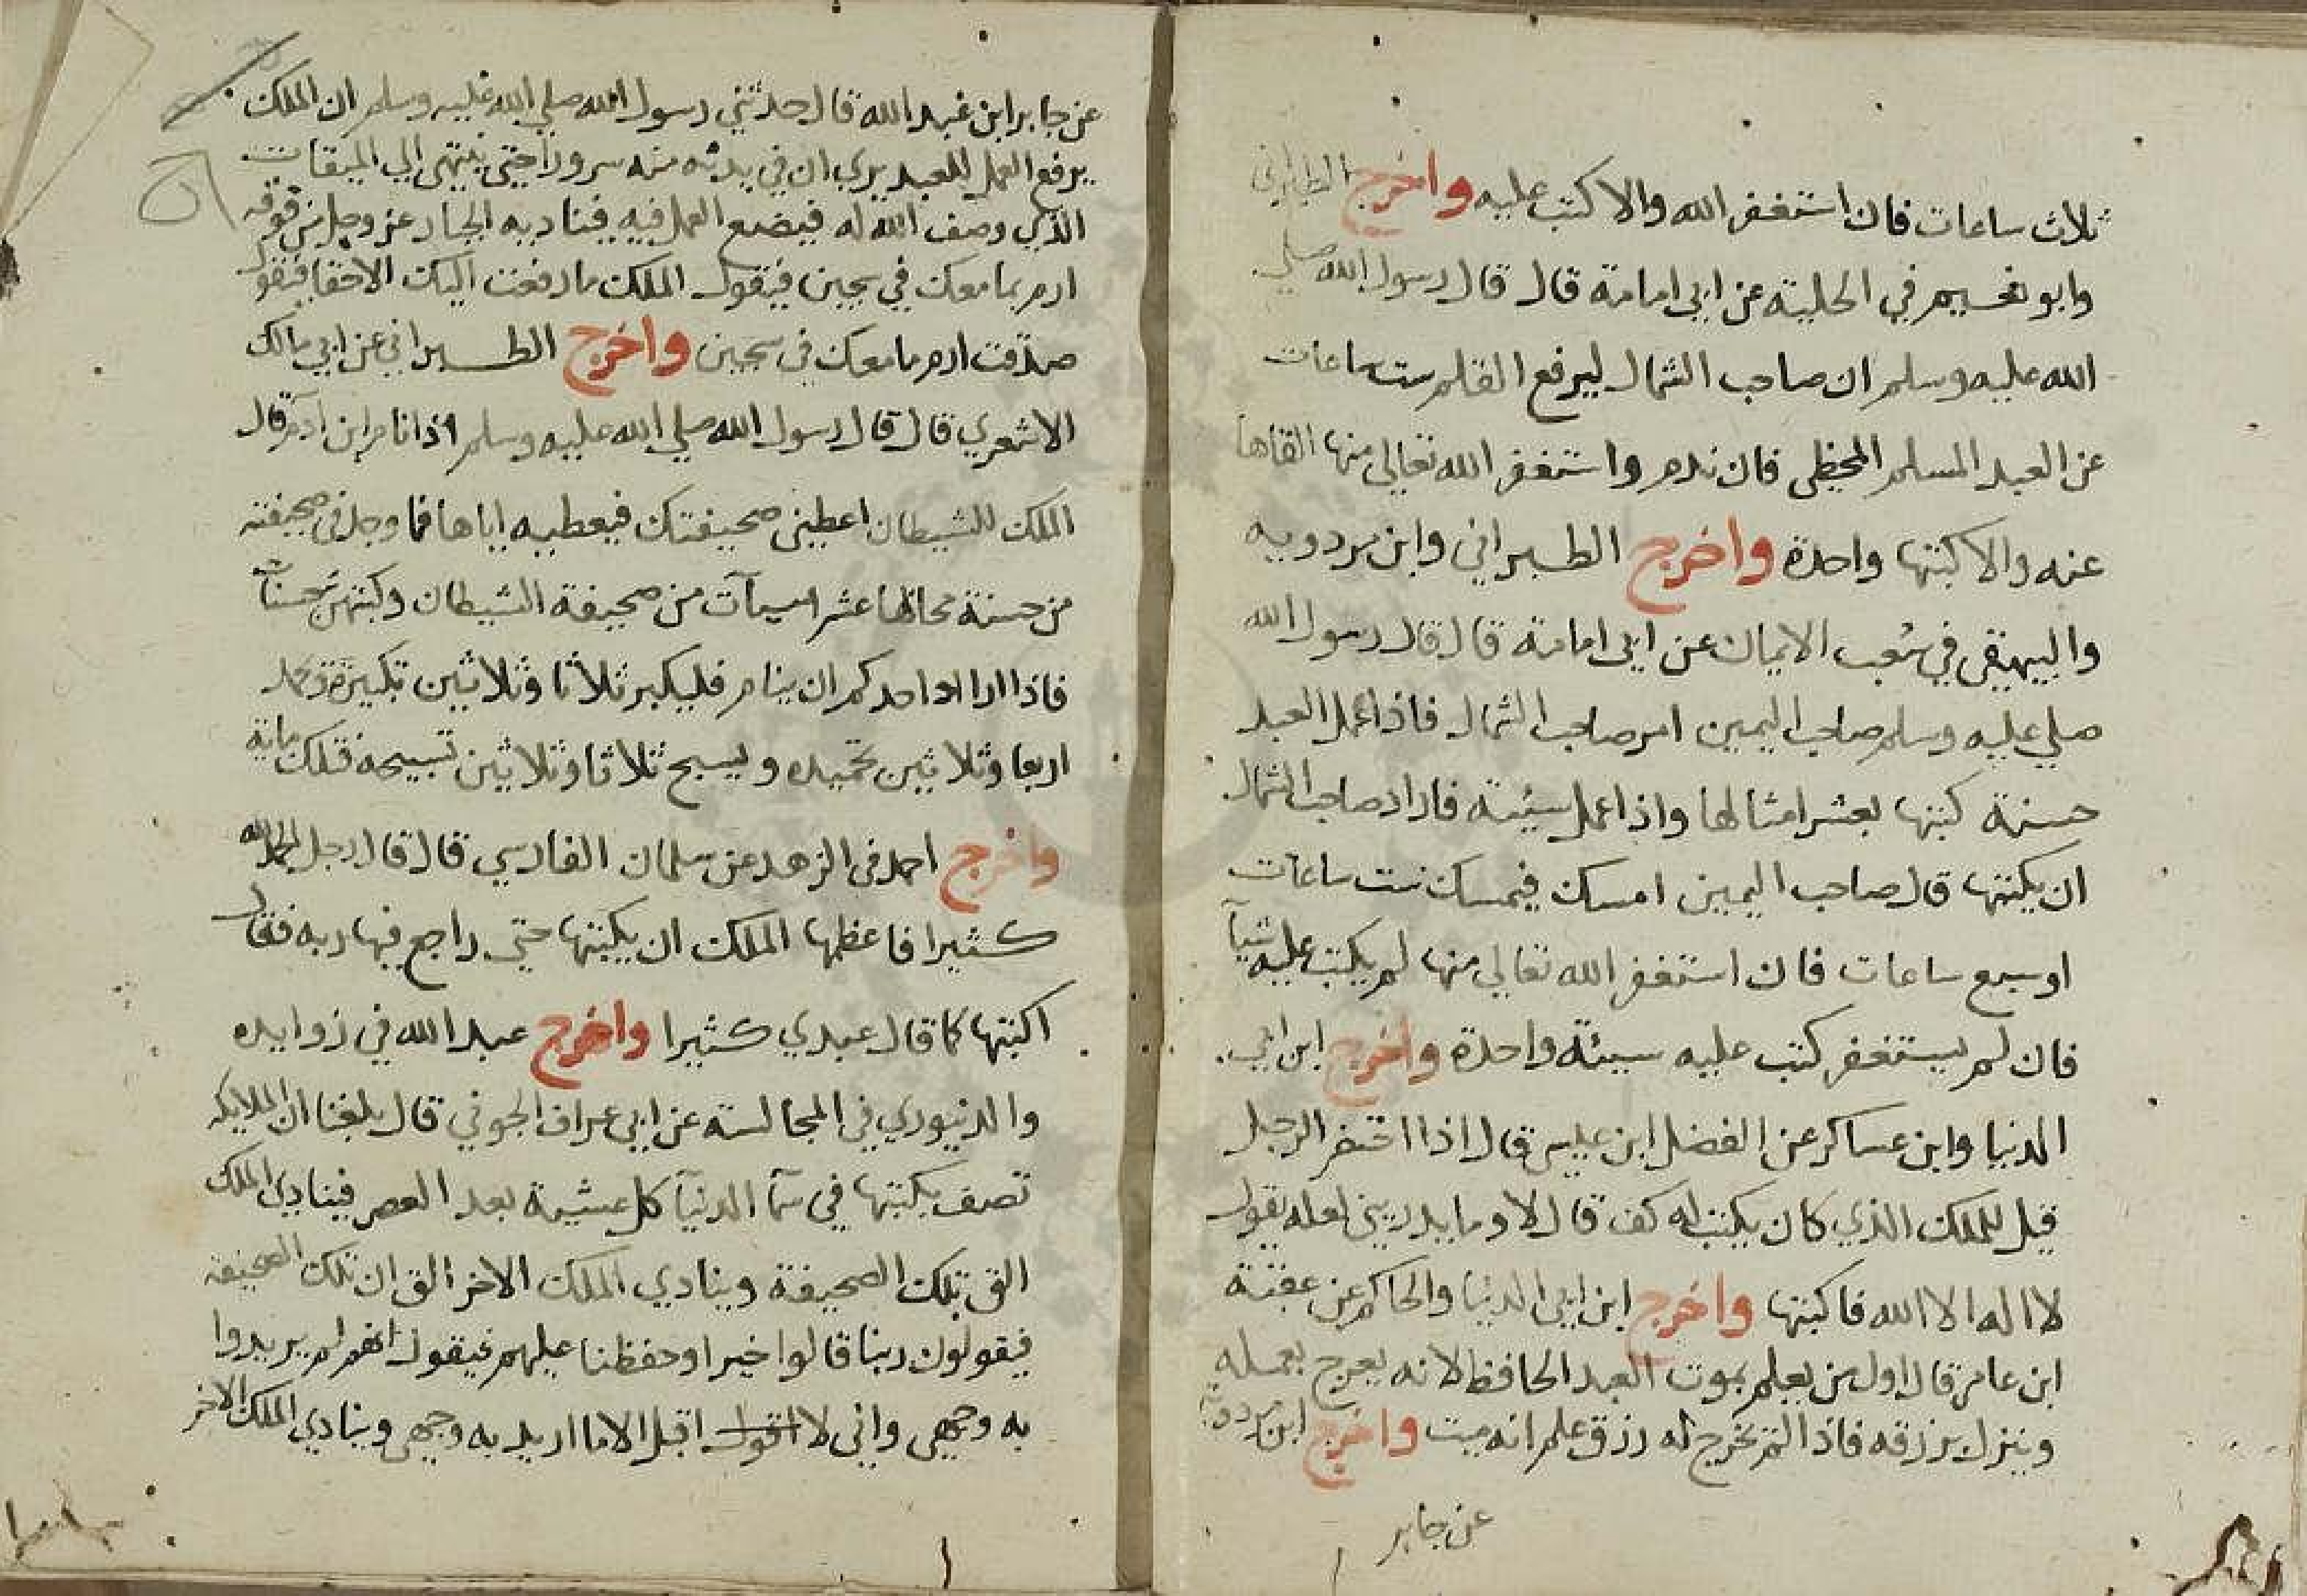 ثلاث ساعات فان استغفر الله والا كتب عليه واخرج الطبراني
وابو نعيم في الحلية عن ابي امامة قال قال رسول الله صلي
الله عليه وسلم ان صاحب الشمال ليرفع القلم ست ساعات
عن العبد المسلم المخطي فان ندم واستغفر الله تعالي منها القاها
عنه والا كتبها واحدة واخرج الطبراني وابن مردويه
والبيهقي في شعب الايمان عن ابي امامة قال قال رسول الله
صلي عليه وسلم صاحب اليمين امر صاحب الشمال فاذا عمل العبد
حسنة كتبها بعشر امثالها واذا عمل سيئة فاراد صاحب الشمال
ان يكتبها قال صاحب اليمين امسك فيمسك ست ساعات
او سبع ساعات فان استغفر الله تعالي منها لم يكتب عليه شيآ
فان لم يستغفر كتب عليه سيئة واحدة واخرج ابن ابي
الدنيا وابن عساكر عن الفضل ابن عيسي قال اذا احتضر الرجل
قيل للملك الذي كان يكتب له كف قال لا وما يدريني لعله يقول
لا اله الا الله فاكتبها واخرج ابن ابي الدنيا والحاكم عن عقبة
ابن عامر قال اول من يعلم بموت العبد الحافظ لانه يعرج بعمله
وينزل برزقه فاذا لم يخرج له رزق علم انه ميت واخرج ابن مردويه
عن جابر
عن جابر ابن عبد الله قال حدثني رسول الله صلي الله عليه وسلم ان الملك
يرفع العمل للعبد يري ان في يديه منه سرورا حتي ينتهي الي الميقات
الذي وصف الله له فيضع العمل فيه فيناديه الجبار عز وجل من فوقه
ارم بما معك في سجين فيقول الملك ما رفعت اليك الا حقا فيقول
صدقت ارم ما معك في سجين واخرج الطبراني عن ابي مالك
الاشعري قال قال رسول الله صلي الله عليه وسلم اذا نام ابن آدم قال
الملك للشيطان اعطيني صحيفتك فيعطيه اياها فما وجد في صحيفته
من حسنة محا بها عشر سيآت من صحيفة الشيطان وكتبهن حسنات
فاذا اراد احدكم ان ينام فليكبر ثلاثا وثلاثين تكبيرة ويحمد
اربعا وثلاثين تحميده ويسبح ثلاثا وثلاثين تسبيحه فتلك ماية
واخرج احمد في الزهد عن سلمان الفارسي قال قال رجل الحمد لله
كثيرا فاعظمها الملك ان يكتبها حتي راجع فيها ربه فقال
اكتبها كما قال عبدي كثيرا واخرج عبد الله في زوايده
والدنيوري في المجالسة عن ابي عمران الجوني قال بلغنا ان الملايكه
تصف بكتبها في سمآ الدنيآ كل عشية بعد العصر فينادي الملك
الق تلك الصحيفة وينادي الملك الاخر الق ان تلك الصحيفه
فيقولون ربنا قالوا خيرا وحفظنا عليهم فيقول انهم لم يريدوا
به وجهي واني لا اقول اقبل الا ما اريد به وجهي وينادي الملك الاخر